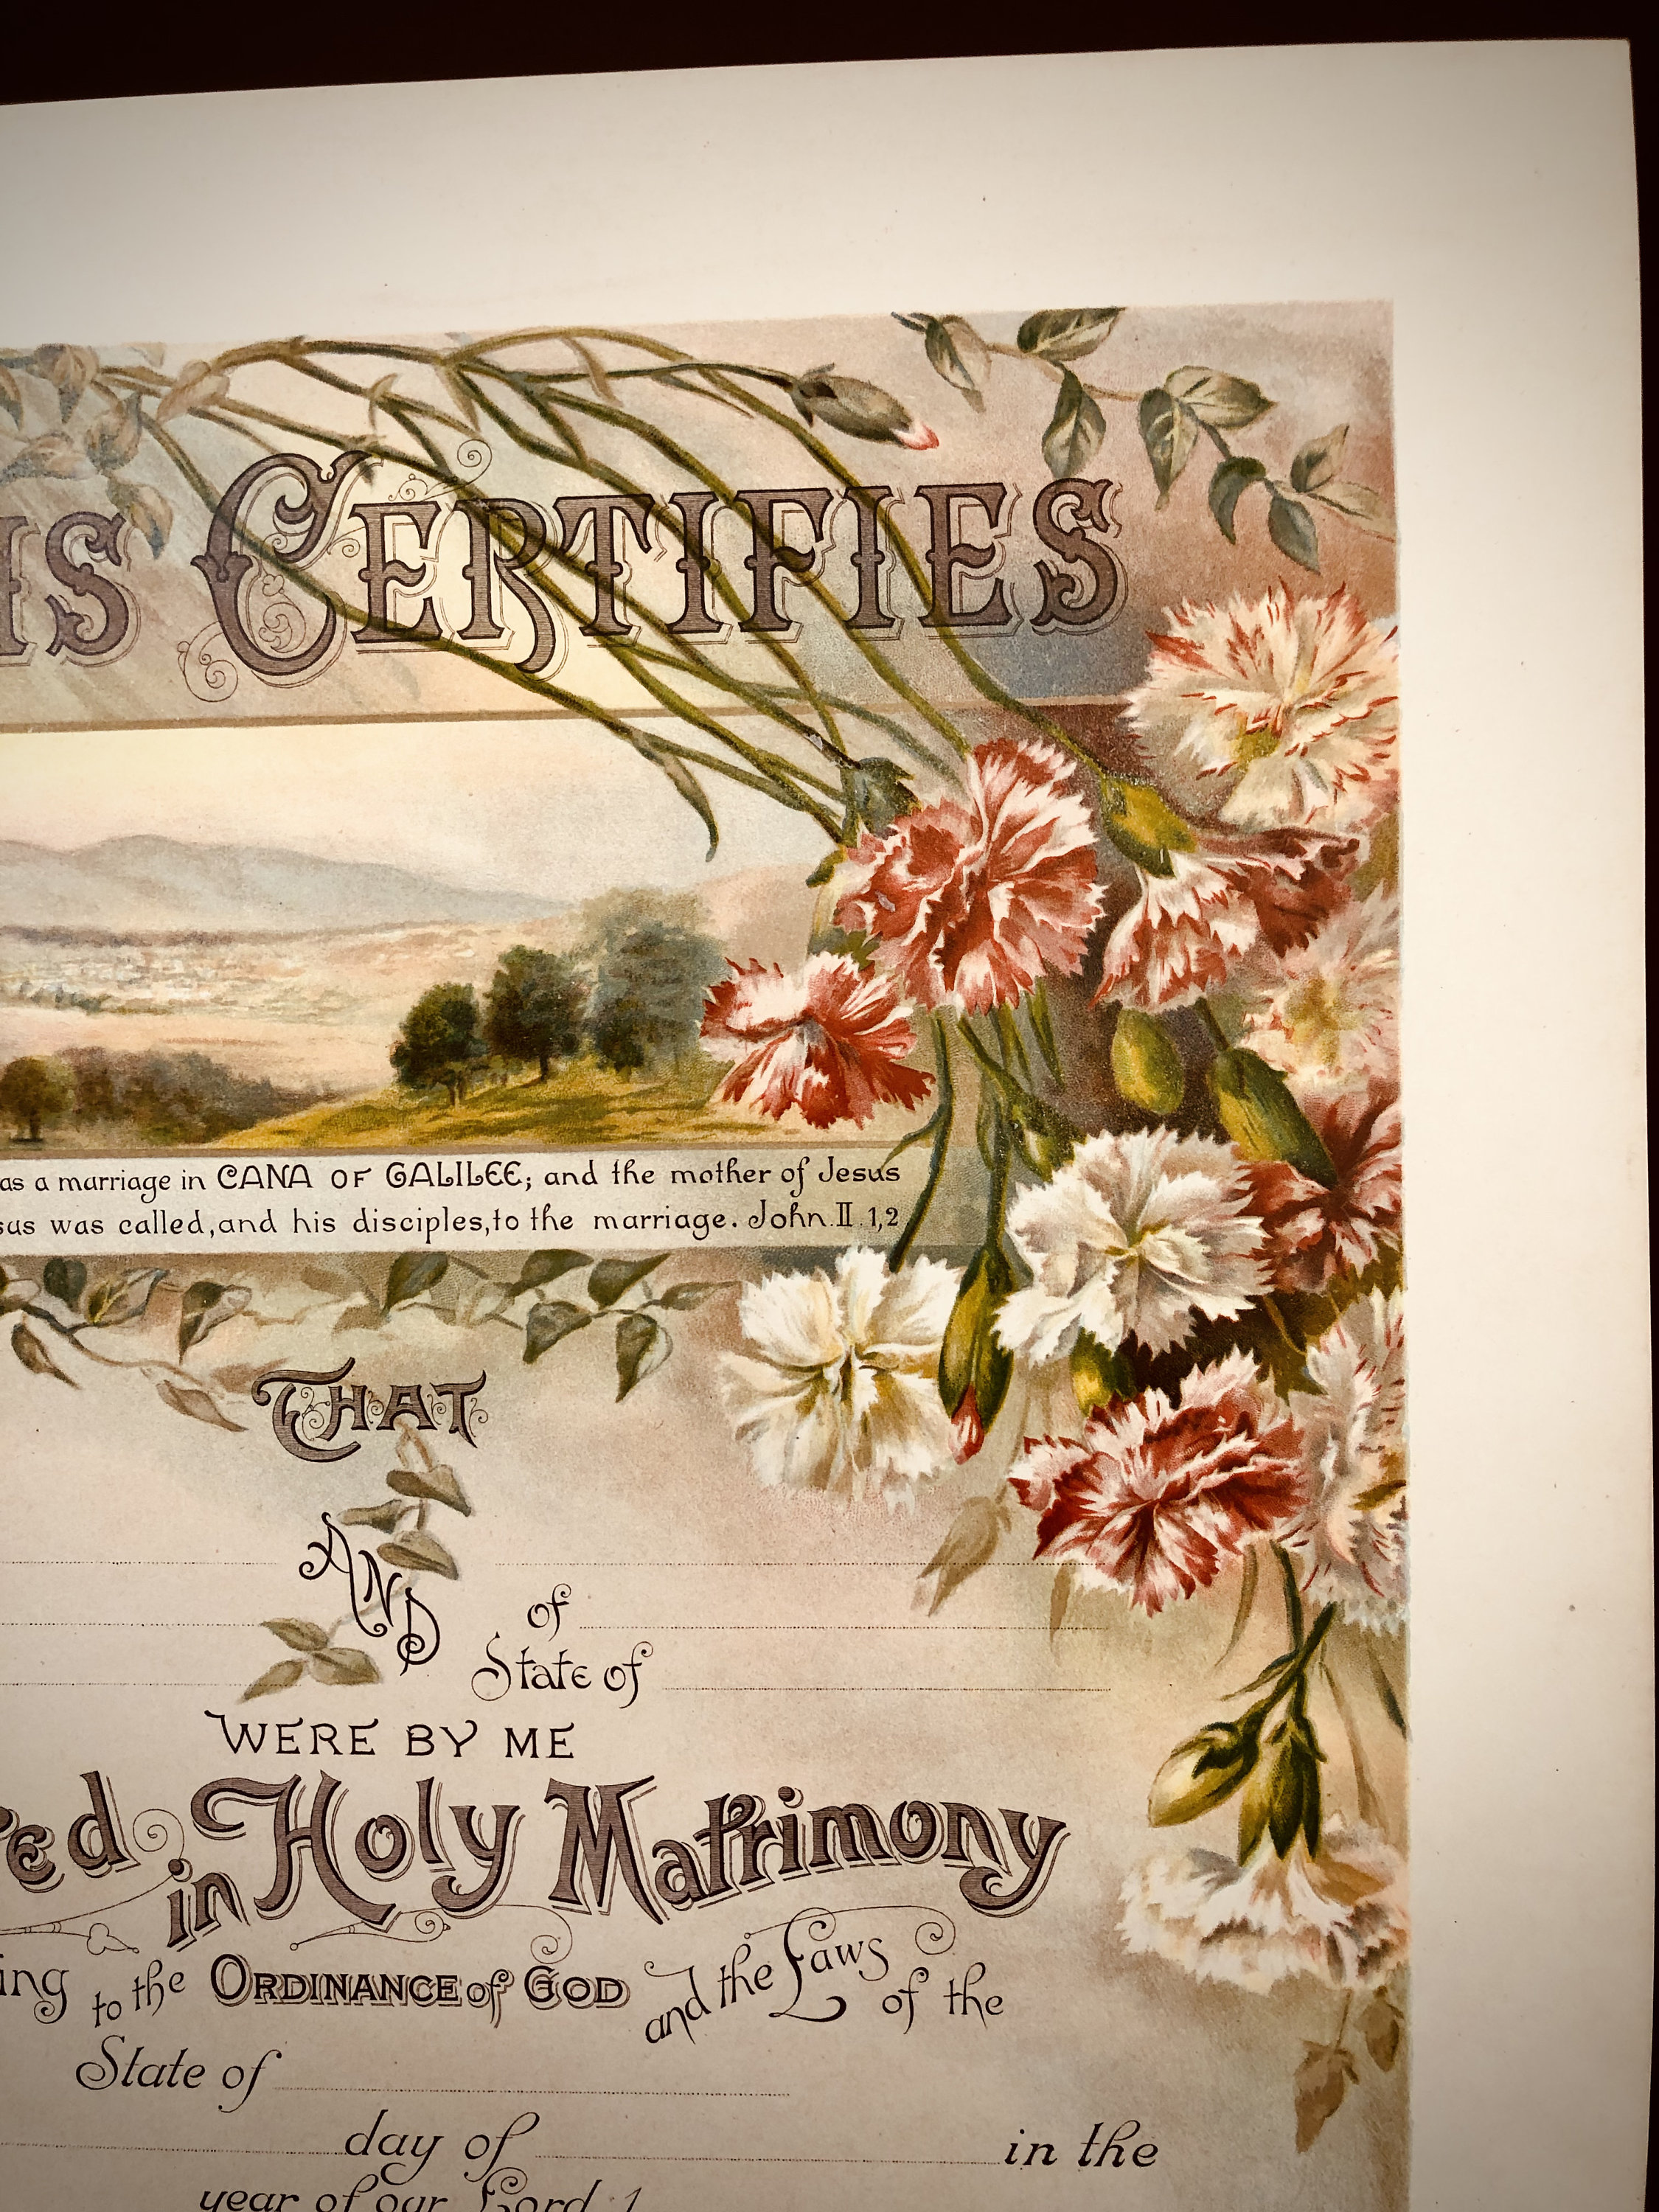 IS CERTIFIES
as a marriage in CANA OF GALILEE; and the mother of Jesus
sus was called, and his disciples, to the marriage. John. II. 1,2
THAT
AND
of
State of
WERE BY ME
ed in Holy Matrimony
ing to the ORDINANCE of GOD and the Laws of the
State of
day of in the
year of our Lord 1